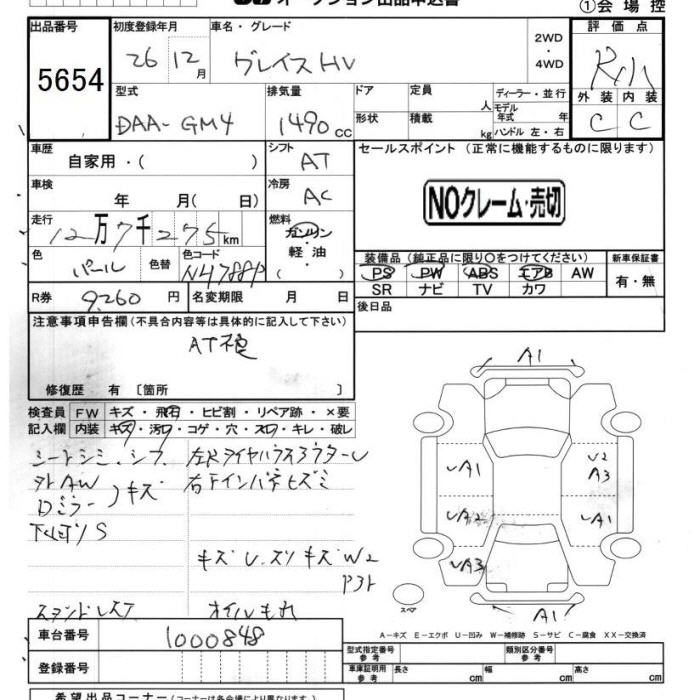 オークション出品申込書
①会場控
出品番号
5654
初度登録年月
26 12月
車名・グレード
グレイスHV
2WD
・
4WD
評価点
R小
外装 内装
C C
型式
DAA-GM4
排気量
1490cc
ドア
定員
人
ディーラー・並行
モデル年式 年
形状
積載
kg
ハンドル 左・右
車歴
自家用・( )
シフト
AT
セールスポイント (正常に機能するものに限ります)
NOクレーム・売切
車検
年 月( 日)
冷房
AC
走行
12万7千275km
燃料
ガソリン
軽油
( )
色
パール
色替
色コード
NH788P
装備品 (純正品に限り○をつけてください)
PS PW ABS エアB AW
SR ナビ TV カワ
新車保証書
有・無
R券 9,260円
名変期限 月 日
後日品
注意事項申告欄 (不具合内容等は具体的に記入して下さい)
修復歴 有 〔箇所 〕
検査員 FW キズ・飛石・ヒビ割・リペア跡・×要
記入欄 内装 キズ・汚レ・コゲ・穴・スレ・キレ・破レ
外AW
Dミラー )キズ
オイルもれ
A1
U2
A3
UA1
UA2
UA1
UA3
A1
スペア
A-キズ E-エクボ U-凹み W-補修跡 S-サビ C-腐食 XX-交換済
車台番号
1000848
登録番号
型式指定番号
参考
類別区分番号
参考
車庫証明用
参考
長さ cm
幅 cm
高さ cm
希望出品コーナー (コーナーは各会場により異なります)